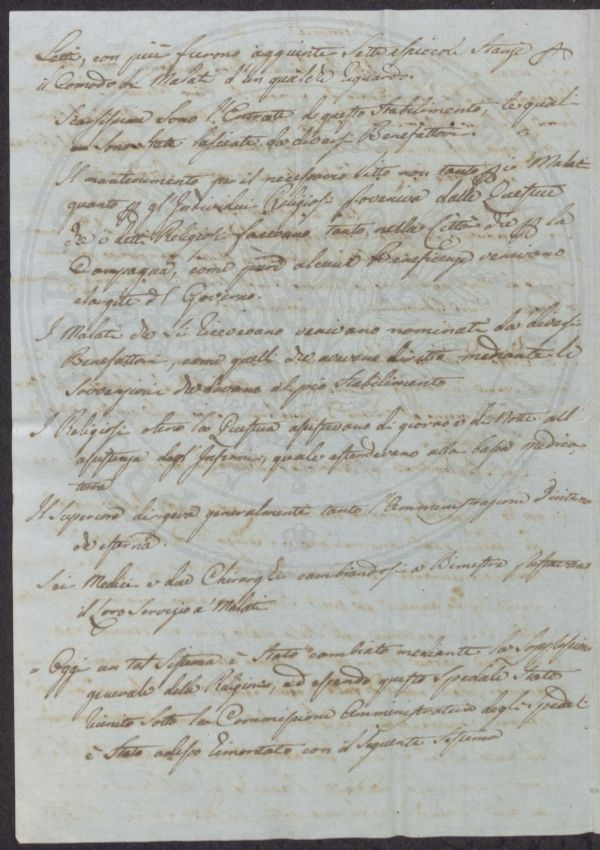 Letti, con più furono aggiunte sette piccole Stanze p
il Comodo di Malati d'un qualche riguardo.
Scarsissime sono l'Entrate di questo Stabilimento, le quali
Sono state lasciate da diversi Benefattori.
Il mantenimento per il necessario vitto non tanto p i Malati
quanto p gl'Individui Religiosi proveniva dalle Questue
che i detti Religiosi facevano tanto nella Città che p la
Campagna, come pure alcune Beneficenze venivano
elargite dal Governo.
I Malati che si ricevevano venivano nominati da diversi
Benefattori, come quelli che avevano diritto mediante le
Sovvenzioni che davano al pio Stabilimento
I Religiosi oltre la Questua assistevano di giorno e di Notte all
assistenza degl'Infermi, quale estendevano alla bassa medica-
tura
Il Superiore dirigeva generalmente tanto l'Amministrazione Interna
che esterna.
Sei Medici e due Chirurghi cambiandosi a Bimestre prestavano
il loro Servizio a' Malati
= Oggi un tal Sistema è Stato cambiato mediante la Soppressione
generale delle Religioni, ed essendo questo Spedale Stato
riunito Sotto la Commissione Amministrativa degli Spedali
è Stato adesso rimontato con il seguente Sistema